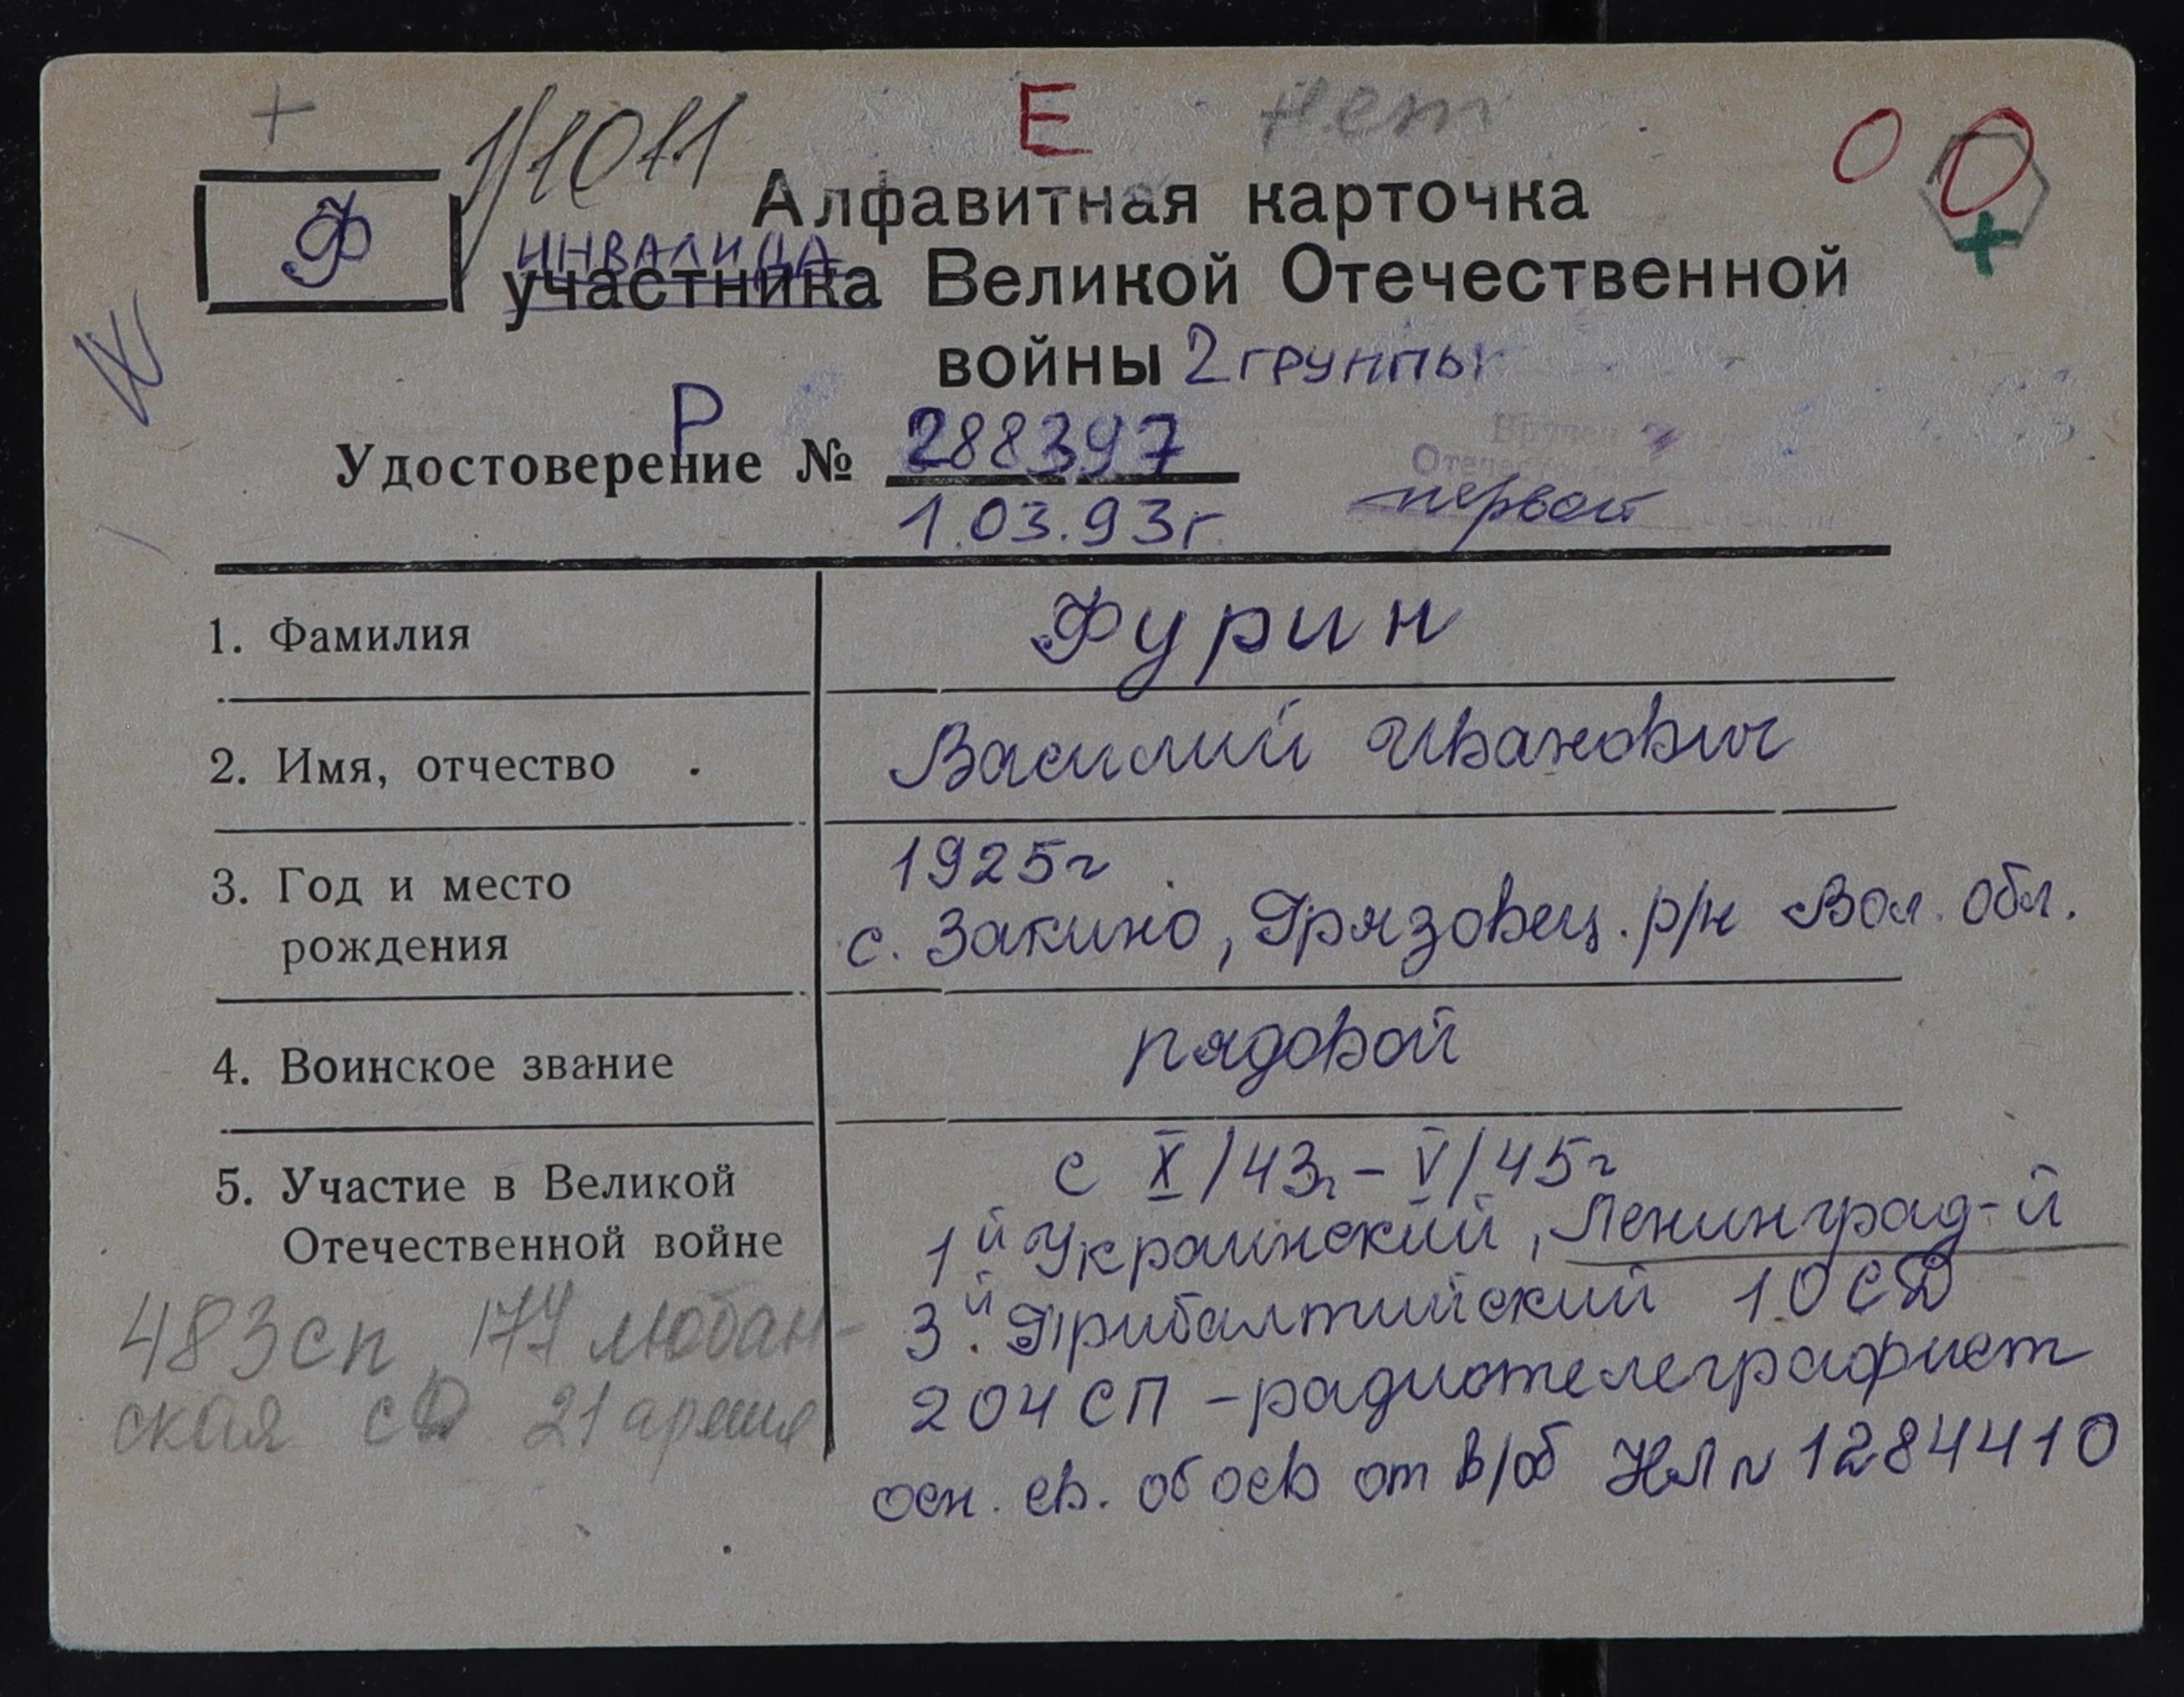 + 1/1011 Е нет 0 0
Ф
+
Алфавитная карточка
инвалида
участника Великой Отечественной
войны 2 группы
Р
Удостоверение № 288397
1.03.93г.
Отечес
первой
1. Фамилия Фурин
2. Имя, отчество Василий Иванович
3. Год и место 1925г
рождения с. Закино, Грязовец. р/н Вол. обл.
4. Воинское звание рядовой
5. Участие в Великой с X/43г – V/45г
Отечественной войне 1й Украинский, Ленинград-й
3й Прибалтийский 10 СД
483сп, 177 любан-
204 СП – радиотелеграфист
ская СД 21 армия
осн. св. об осв от в/об НЛ N 1284410